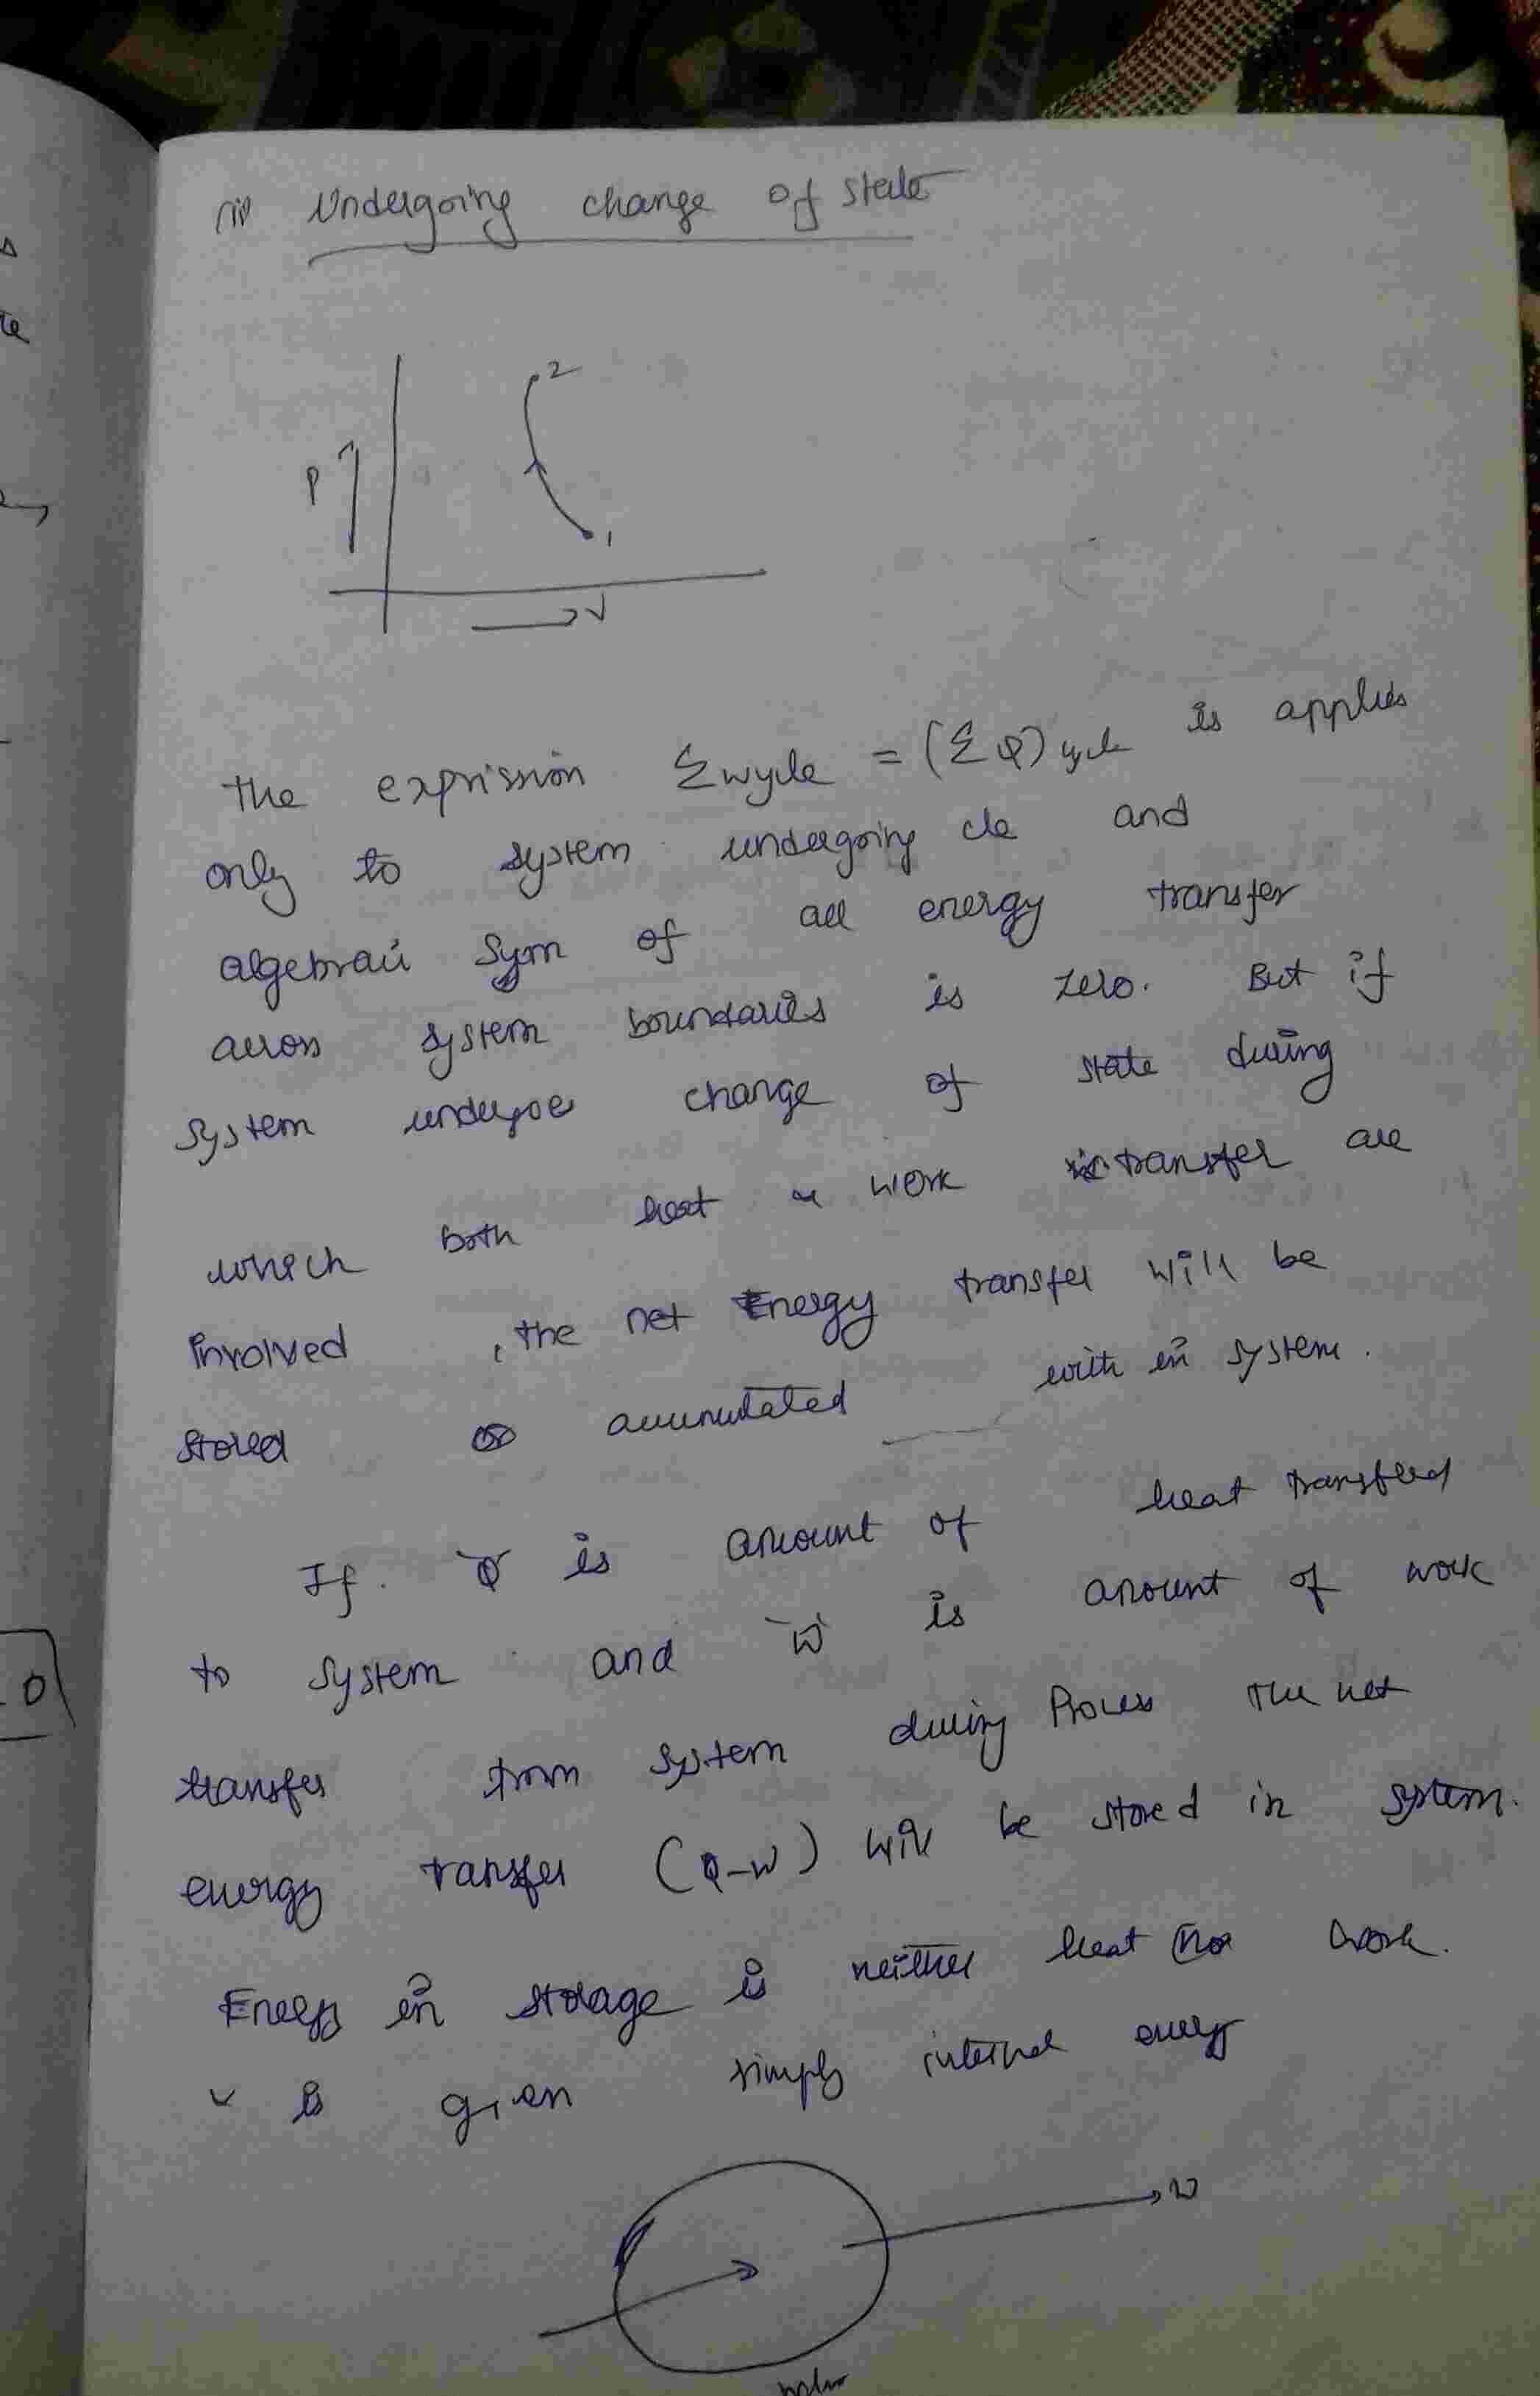 (ii) Undergoing change of state
2
P
1
V
The expression Σwycle = (ΣQ) cycle is applies
only to system undergoing cle and
algebraic sym of all energy transfer
across system boundaries is zero. But if
system undergoes change of state during
which both heat & work transfer are
involved , the net Energy transfer will be
stored or accumulated with in system.
If Q is amount of heat transfered
to system and W is amount of work
transfer from system during Process The net
energy transfer (Q-W) will be stored in system.
Energy in storage is neither heat nor work.
& is given simply internal energy
W
0